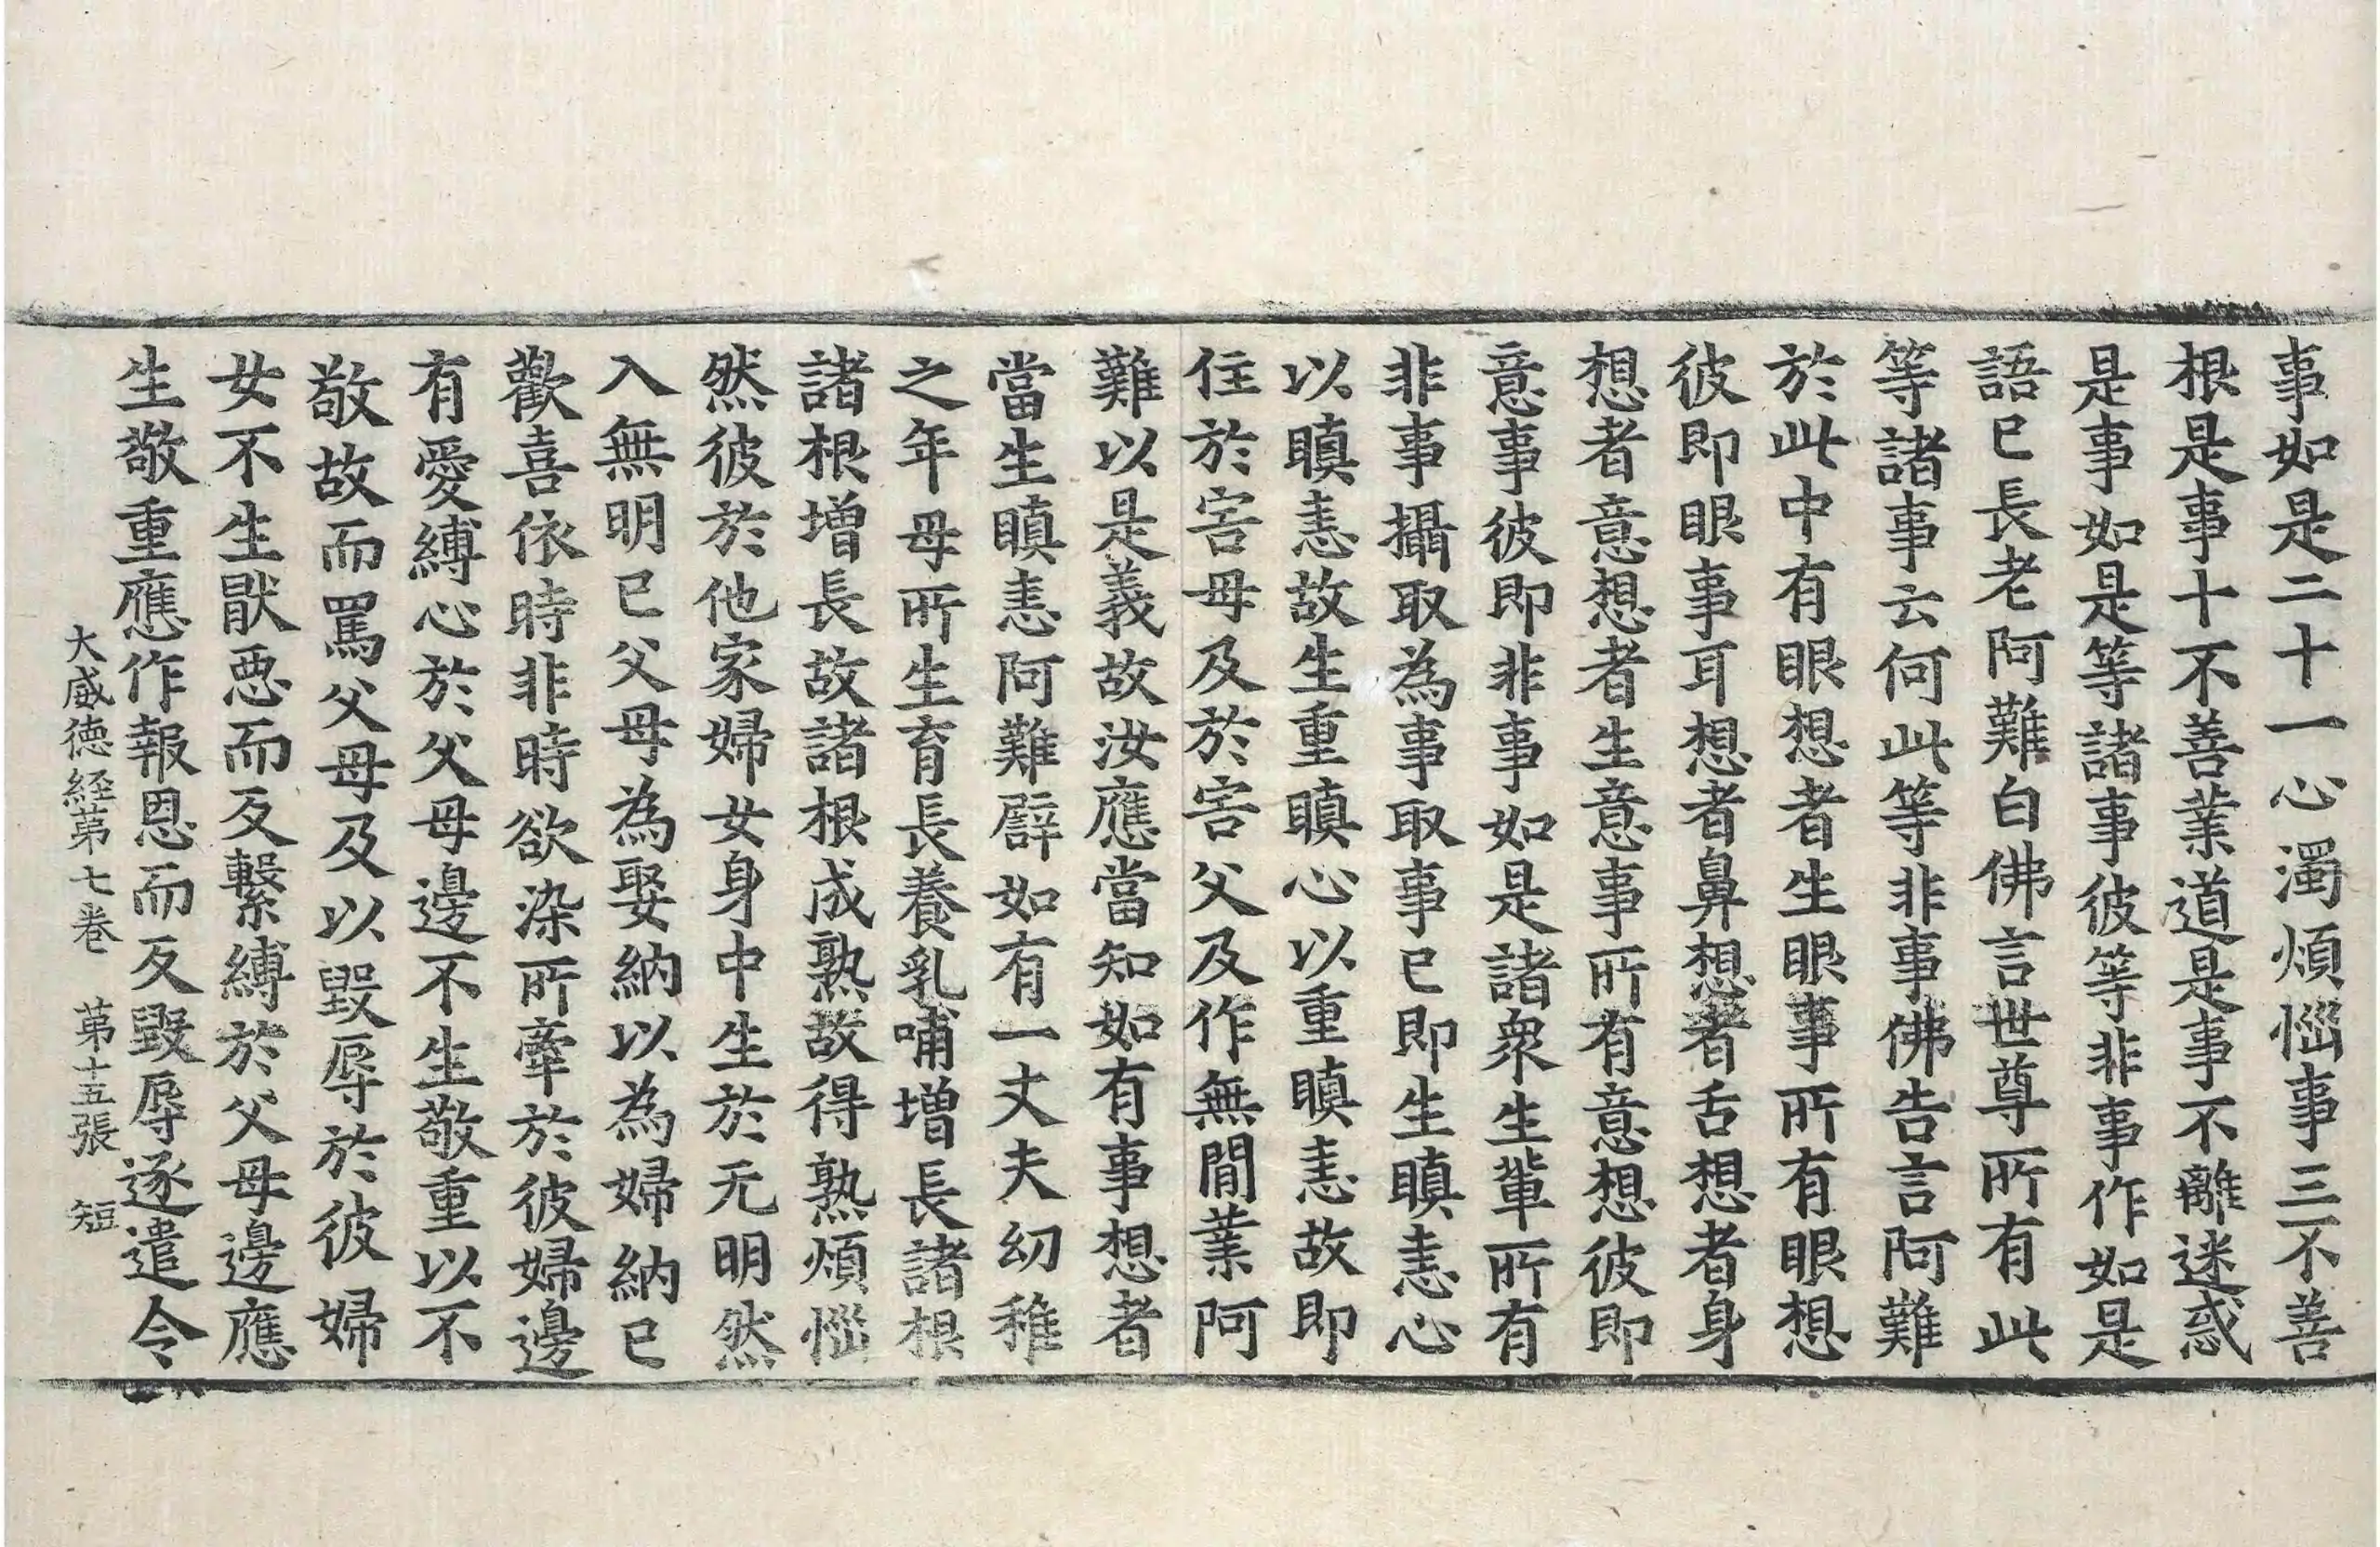 事如是二十一心濁煩惱事三不善
根是事十不善業道是事不離迷惑
是事如是等諸事彼等非事作如是
語已長老阿難白佛言世尊所有此
等諸事云何此等非事佛告言阿難
於此中有眼想者生眼事所有眼想
彼即眼事耳想者鼻想者舌想者身
想者意想者生意事所有意想彼即
意事彼即非事如是諸衆生輩所有
非事攝取為事取事已即生瞋恚心
以瞋恚故生重瞋心以重瞋恚故即
住於害母及於害父及作無間業阿
難以是義故汝應當知如有事想者
當生瞋恚阿難譬如有一丈夫幼稚
之年母所生育長養乳哺增長諸根
諸根增長故諸根成熟故得熟煩惱
然彼於他家婦女身中生於无明然
入無明已父母為娶納以為婦納已
歡喜依時非時欲染所牽於彼婦邊
有愛縛心於父母邊不生敬重以不
敬故而罵父母及以毀辱於彼婦
女不生猒惡而反繫縛於父母邊應
生敬重應作報恩而反毀辱逐遣令
大威徳経苐七巻　苐十五張　短